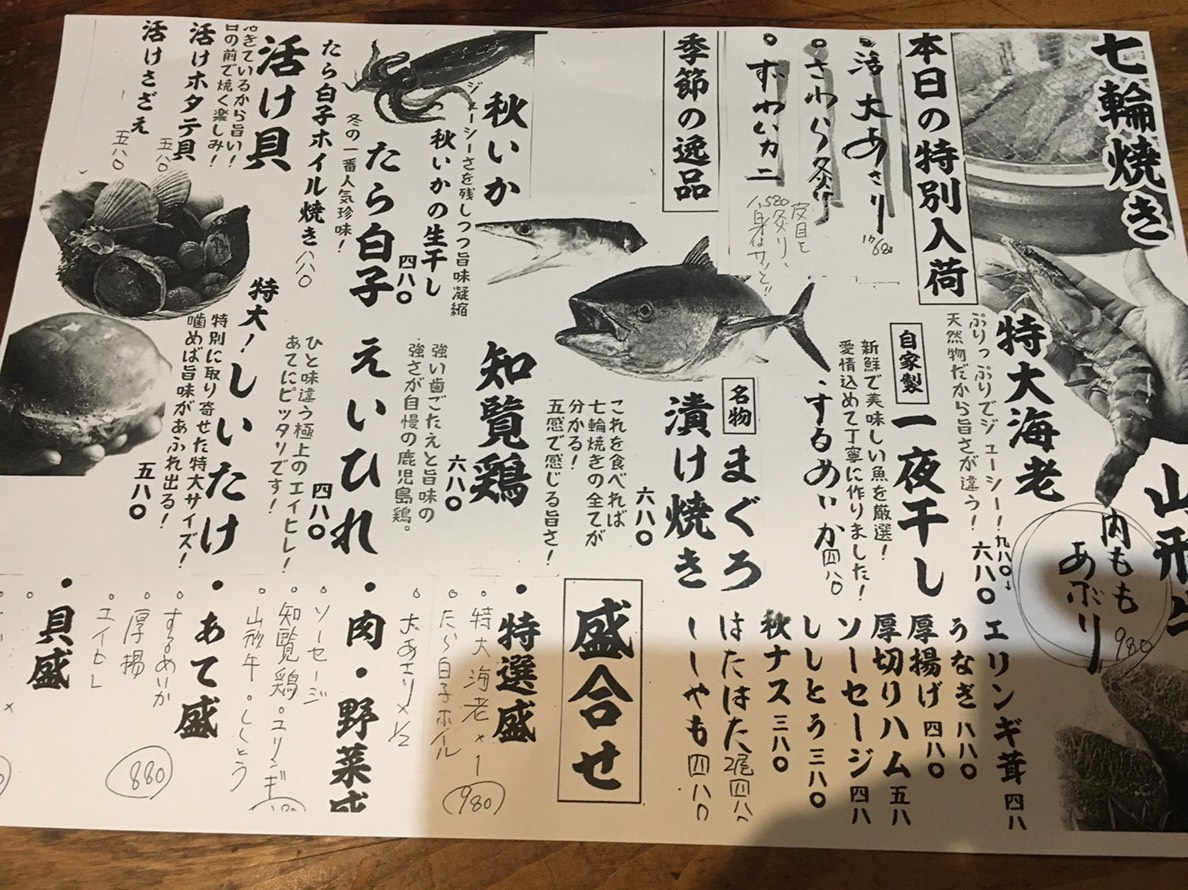 七輪焼き
特大海老
ぷりっぷりでジューシー！
天然物だから旨さが違う！
九八〇→六八〇
山形牛
内もも
あぶり
980
本日の特別入荷
・活大あさり
・さわら炙り
580
皮目を
炙り、
身はサッと!!
・ずわいカニ
自家製
一夜干し
新鮮で美味しい魚を厳選！
愛情込めて丁寧に作りました！
・するめいか 四八〇
季節の逸品
名物
まぐろ
漬け焼き
六八〇
これを食べれば
七輪焼きの全てが
分かる！
五感で感じる旨さ！
秋いか
ジューシーさを残しつつ旨味凝縮
秋いかの生干し
四八〇
たら白子
冬の一番人気珍味！
たら白子ホイル焼き 八八〇
知覧鶏
強い歯ごたえと旨味の
強さが自慢の鹿児島鶏。
六八〇
えいひれ
ひと味違う極上のエイヒレ！
あてにピッタリです！
四八〇
活け貝
活きているから旨い！
目の前で焼く楽しみ！
活けホタテ貝
五八〇
活けさざえ
五八〇
特大！
しいたけ
特別に取り寄せた特大サイズ！
噛めば旨味があふれ出る！
五八〇
エリンギ茸 四八
うなぎ 八八〇
厚揚げ 四八〇
厚切りハム 五八
ソーセージ 四八
ししとう 三八〇
秋ナス 三八〇
はたはた 2尾 四八
ししゃも 四八〇
盛合せ
・特選盛
特大海老×1
たら白子ホイル
大あさり×1/2
980
・肉・野菜盛
ソーセージ
知覧鶏・エリンギ
山形牛・ししとう
・あて盛
するめいか
厚揚
エイヒレ
880
・貝盛